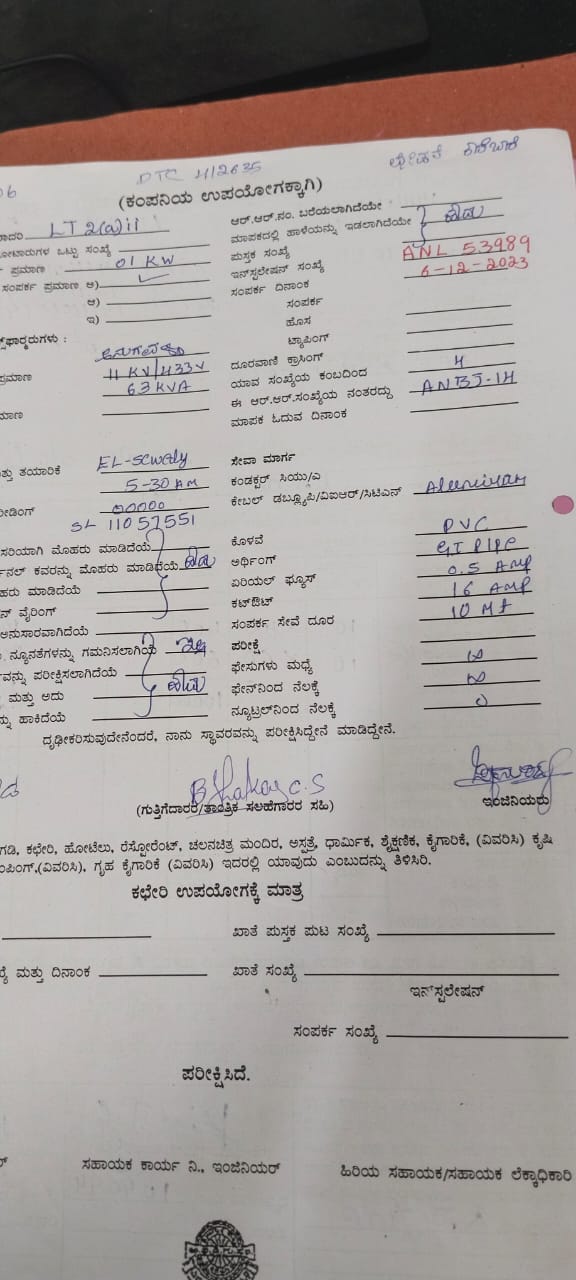 06
DTC 412635
(ಕಂಪನಿಯ ಉಪಯೋಗಕ್ಕಾಗಿ)
ಆರ್.ಆರ್.ನಂ. ಬರೆಯಲಾಗಿದೆಯೇ
ಮಾದರಿ LT 2(a)ii
ಮಾಪಕದಲ್ಲಿ ಹಾಳೆಯನ್ನು ಇಡಲಾಗಿದೆಯೇ ಹೌದು
ಮೋಟಾರುಗಳ ಒಟ್ಟು ಸಂಖ್ಯೆ
ಪುಸ್ತಕ ಸಂಖ್ಯೆ
ಪ್ರಮಾಣ 01 KW
ಇನ್‌ಸ್ಟಲೇಷನ್ ಸಂಖ್ಯೆ ANL 53989
ಸಂಪರ್ಕ ಪ್ರಮಾಣ ಅ)
ಸಂಪರ್ಕ ದಿನಾಂಕ 6-12-2023
ಆ)
ಸಂಪರ್ಕ
ಇ)
ಹೊಸ
ಟ್ಯಾಪಿಂಗ್
ದೂರವಾಣಿ ಕ್ರಾಸಿಂಗ್
ಪ್ರಮಾಣ 11 KV/433V
ಯಾವ ಸಂಖ್ಯೆಯ ಕಂಬದಿಂದ 4
63 KVA
ಈ ಆರ್.ಆರ್.ಸಂಖ್ಯೆಯ ನಂತರದ್ದು ANBJ-14
ಮಾಪಕ ಓದುವ ದಿನಾಂಕ
ಮತ್ತು ತಯಾರಿಕೆ
ಸೇವಾ ಮಾರ್ಗ
5-30 AM
ಕಂಡಕ್ಟರ್ ಸಿಯು/ಎ
ರೀಡಿಂಗ್ 00000
ಕೇಬಲ್ ಡಬ್ಲ್ಯೂಪಿ/ವಿಐಆರ್/ಸಿಟಿಎನ್
SL 11057551
ಸರಿಯಾಗಿ ಮೊಹರು ಮಾಡಿದೆಯೆ
ಕೊಳವೆ PVC
ನಲ್ ಕವರನ್ನು ಮೊಹರು ಮಾಡಿದೆಯೆ ಹೌದು
ಅರ್ಥಿಂಗ್ GI PIPE
ಮೊಹರು ಮಾಡಿದೆಯೆ
ಏರಿಯಲ್ ಫ್ಯೂಸ್ 0.5 Amp
ನ್ ವೈರಿಂಗ್
ಕಟ್‌ಔಟ್ 16 Amp
ಅನುಸಾರವಾಗಿದೆಯೆ
ಸಂಪರ್ಕ ಸೇವೆ ದೂರ 10 Mt
ನ್ಯೂನತೆಗಳನ್ನು ಗಮನಿಸಲಾಗಿಯೆ ಇಲ್ಲ
ಪರೀಕ್ಷೆ
ವನ್ನು ಪರೀಕ್ಷಿಸಲಾಗಿದೆಯೆ
ಫೇಸುಗಳು ಮಧ್ಯೆ ∞
ಮತ್ತು ಅದು ಹೌದು
ಫೇನ್‌ನಿಂದ ನೆಲಕ್ಕೆ ∞
ನ್ನು ಹಾಕಿದೆಯೆ
ನ್ಯೂಟ್ರಲ್‌ನಿಂದ ನೆಲಕ್ಕೆ 0
ದೃಢೀಕರಿಸುವುದೇನೆಂದರೆ, ನಾನು ಸ್ಥಾವರವನ್ನು ಪರೀಕ್ಷಿಸಿದ್ದೇನೆ ಮಾಡಿದ್ದೇನೆ.
(ಗುತ್ತಿಗೆದಾರರ/ತಾಂತ್ರಿಕ ಸಲಹೆಗಾರರ ಸಹಿ)
ಇಂಜಿನಿಯರು
ಗಡಿ, ಕಛೇರಿ, ಹೋಟೆಲು, ರೆಸ್ಟೋರೆಂಟ್, ಚಲನಚಿತ್ರ ಮಂದಿರ, ಅಸ್ಪತ್ರೆ, ಧಾರ್ಮಿಕ, ಶೈಕ್ಷಣಿಕ, ಕೈಗಾರಿಕೆ, (ವಿವರಿಸಿ) ಕೃಷಿ
ಪಂಪಿಂಗ್,(ವಿವರಿಸಿ), ಗೃಹ ಕೈಗಾರಿಕೆ (ವಿವರಿಸಿ) ಇದರಲ್ಲಿ ಯಾವುದು ಎಂಬುದನ್ನು ತಿಳಿಸಿರಿ.
ಕಛೇರಿ ಉಪಯೋಗಕ್ಕೆ ಮಾತ್ರ
ಖಾತೆ ಪುಸ್ತಕ ಪುಟ ಸಂಖ್ಯೆ
ಮತ್ತು ದಿನಾಂಕ
ಖಾತೆ ಸಂಖ್ಯೆ
ಇನ್‌ಸ್ಟಲೇಷನ್
ಸಂಪರ್ಕ ಸಂಖ್ಯೆ
ಪರೀಕ್ಷಿಸಿದೆ.
ಸಹಾಯಕ ಕಾರ್ಯ ನಿ., ಇಂಜಿನಿಯರ್
ಹಿರಿಯ ಸಹಾಯಕ/ಸಹಾಯಕ ಲೆಕ್ಕಾಧಿಕಾರಿ